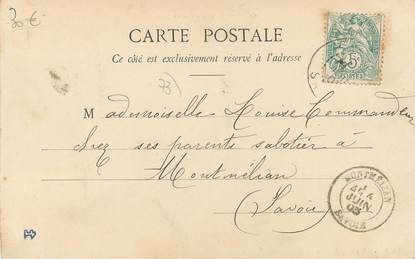 30 €
CARTE POSTALE
Ce côté est exclusivement réservé à l'adresse
5c
POSTES
Mademoiselle Louise Commandeur
Chez ses parents sabotier à
Montmélian
(Savoie)
MONTMÉLIAN
JUIN
03
SAVOIE